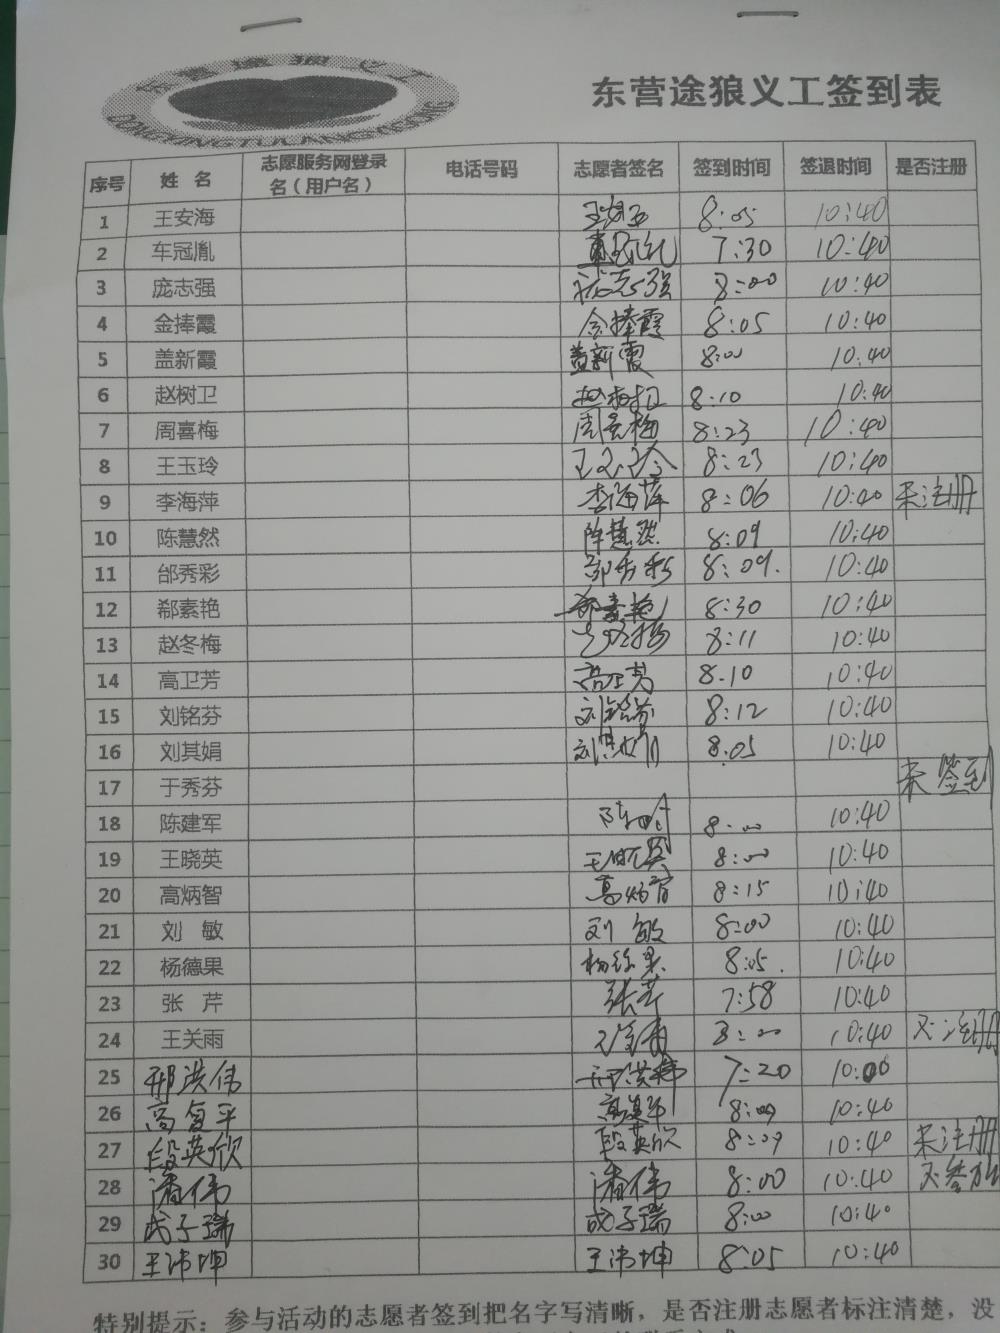 东营途狼义工签到表
DONGYINGTULANGYIGONG
序号 姓 名 志愿服务网登录名（用户名） 电话号码 志愿者签名 签到时间 签退时间 是否注册
1 王安海 8:05 10:40
2 车冠胤 7:30 10:40
3 庞志强 庞志强 8:00 10:40
4 金捧霞 金捧霞 8:05 10:40
5 盖新霞 盖新霞 8:00 10:40
6 赵树卫 8:10 10:40
7 周喜梅 周喜梅 8:23 10:40
8 王玉玲 王玉玲 8:23 10:40
9 李海萍 李海萍 8:06 10:40 未注册
10 陈慧然 陈慧然 8:09 10:40
11 邰秀彩 8:09. 10:40
12 郗素艳 郗素艳 8:30 10:40
13 赵冬梅 8:11 10:40
14 高卫芳 高卫芳 8.10 10:40
15 刘铭芬 刘铭芬 8:12 10:40
16 刘其娟 刘其娟 8:05 10:40
17 于秀芬 未签到
18 陈建军 8:00 10:40
19 王晓英 王晓英 8:00 10:40
20 高炳智 高炳智 8:15 10:40
21 刘 敏 刘 敏 8:00 10:40
22 杨德果 杨德果 8:05. 10:40
23 张 芹 张芹 7:58 10:40
24 王关雨 8:00 10:40 注册
25 邢洪伟 邢洪伟 7:20 10:00
26 高复平 8:09 10:40
27 段英欣 段英欣 8:09 10:40 未注册
28 潘伟 潘伟 8:00 10:40
29 成子瑞 成子瑞 8:00 10:40
30 王沛坤 王沛坤 8:05 10:40
特别提示：参与活动的志愿者签到把名字写清晰，是否注册志愿者标注清楚，没